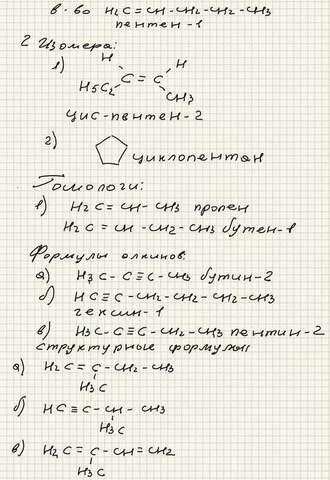 в-во H₂C=CH-CH₂-CH₂-CH₃
пентен-1
2 Изомера:
1) H H
C = C
H₅C₂ CH₃
цис-пентен-2
2) циклопентан
Гомологи:
в) H₂C=CH-CH₃ пропен
H₂C=CH-CH₂-CH₃ бутен-1
Формулы алкинов:
а) H₃C-C≡C-CH₃ бутин-2
б) HC≡C-CH₂-CH₂-CH₂-CH₃
гексин-1
в) H₃C-C≡C-CH₂-CH₃ пентин-2
структурные формулы
а) H₂C=C-CH₂-CH₃
H₃C
б) HC≡C-CH-CH₃
H₃C
в) H₂C=C-CH=CH₂
H₃C